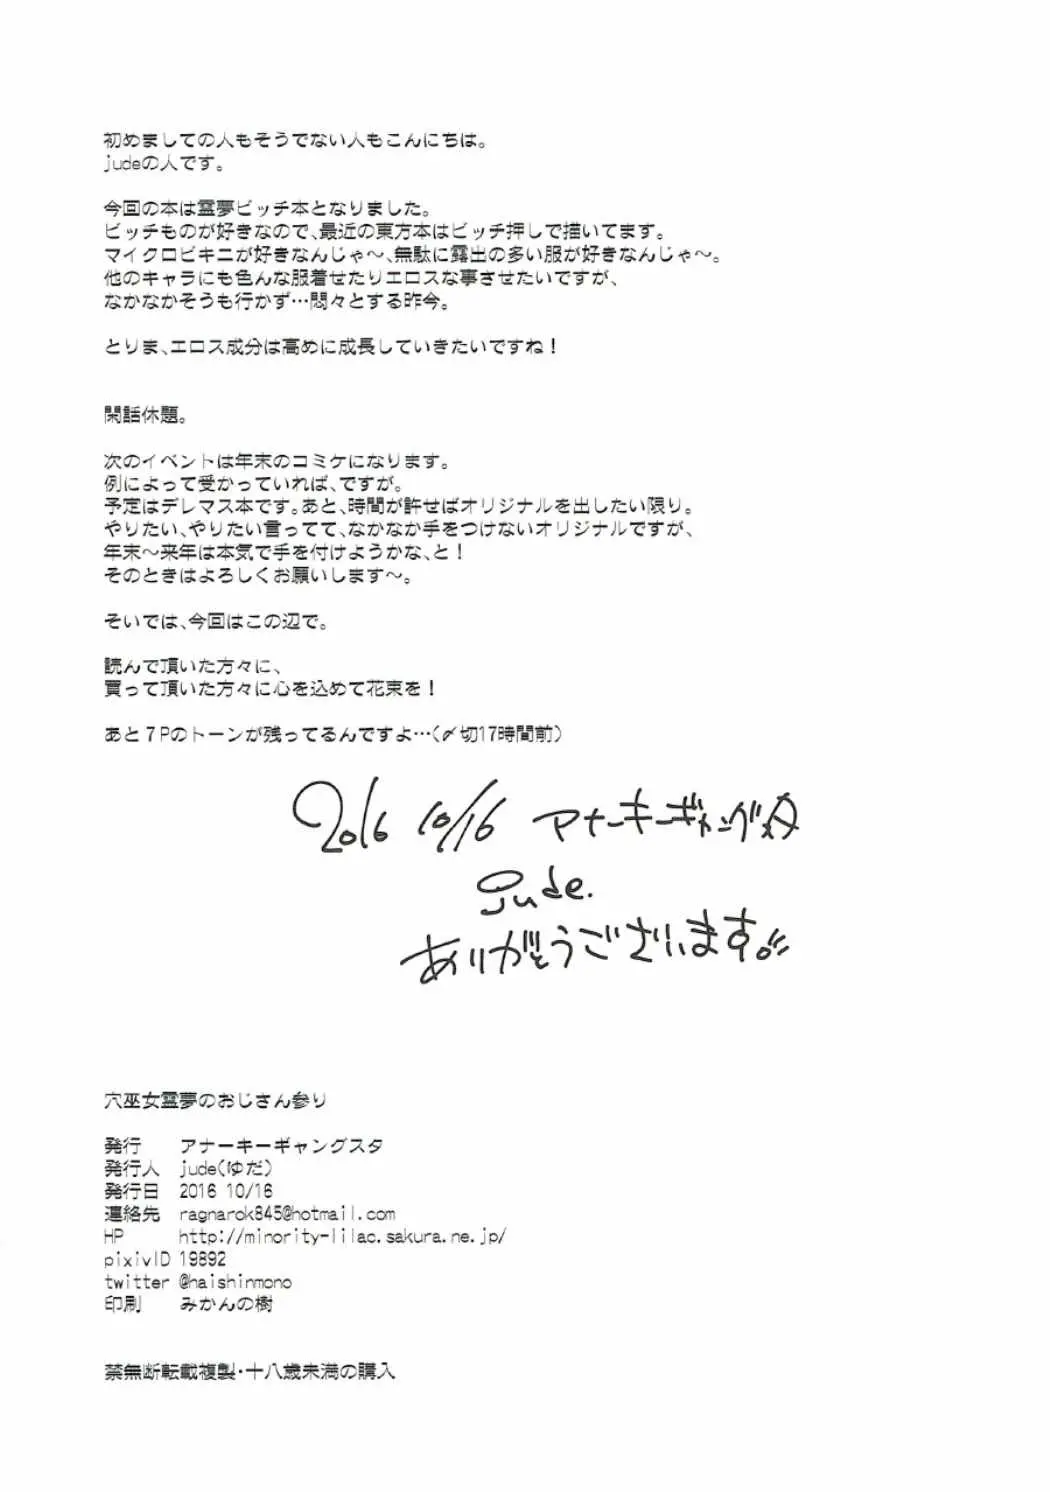 初めましての人もそうでない人もこんにちは。
judeの人です。
今回の本は霊夢ビッチ本となりました。
ビッチものが好きなので、最近の東方本はビッチ押しで描いてます。
マイクロビキニが好きなんじゃ～、無駄に露出の多い服が好きなんじゃ～。
他のキャラにも色んな服着せたりエロスな事させたいですが、
なかなかそうも行かず…悶々とする昨今。
とりま、エロス成分は高めに成長していきたいですね！
閑話休題。
次のイベントは年末のコミケになります。
例によって受かっていれば、ですが。
予定はデレマス本です。あと、時間が許せばオリジナルを出したい限り。
やりたい、やりたい言ってて、なかなか手をつけないオリジナルですが、
年末～来年は本気で手を付けようかな、と！
そのときはよろしくお願いします～。
そいでは、今回はこの辺で。
読んで頂いた方々に、
買って頂いた方々に心を込めて花束を！
あと７Pのトーンが残ってるんですよ…（〆切17時間前）
2016 10/16 アナーキーギャングスタ
jude.
ありがとうございます!!
穴巫女霊夢のおじさん参り
発行 アナーキーギャングスタ
発行人 jude（ゆだ）
発行日 2016 10/16
連絡先 ragnarok845@hotmail.com
HP http://minority-lilac.sakura.ne.jp/
pixivID 19892
twitter @haishinmono
印刷 みかんの樹
禁無断転載複製・十八歳未満の購入